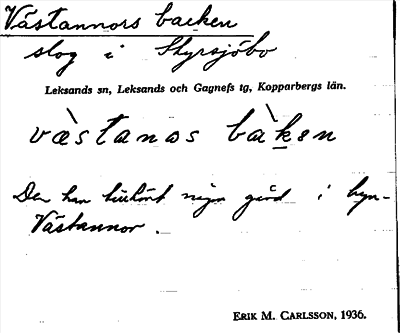 Västannors backen
slog i Styrsjöbo
Leksands sn, Leksands och Gagnefs tg, Kopparbergs län.
væ̀stanos bàken
Den har tillhört någon gård i byn
Västannor.
ERIK M. CARLSSON, 1936.